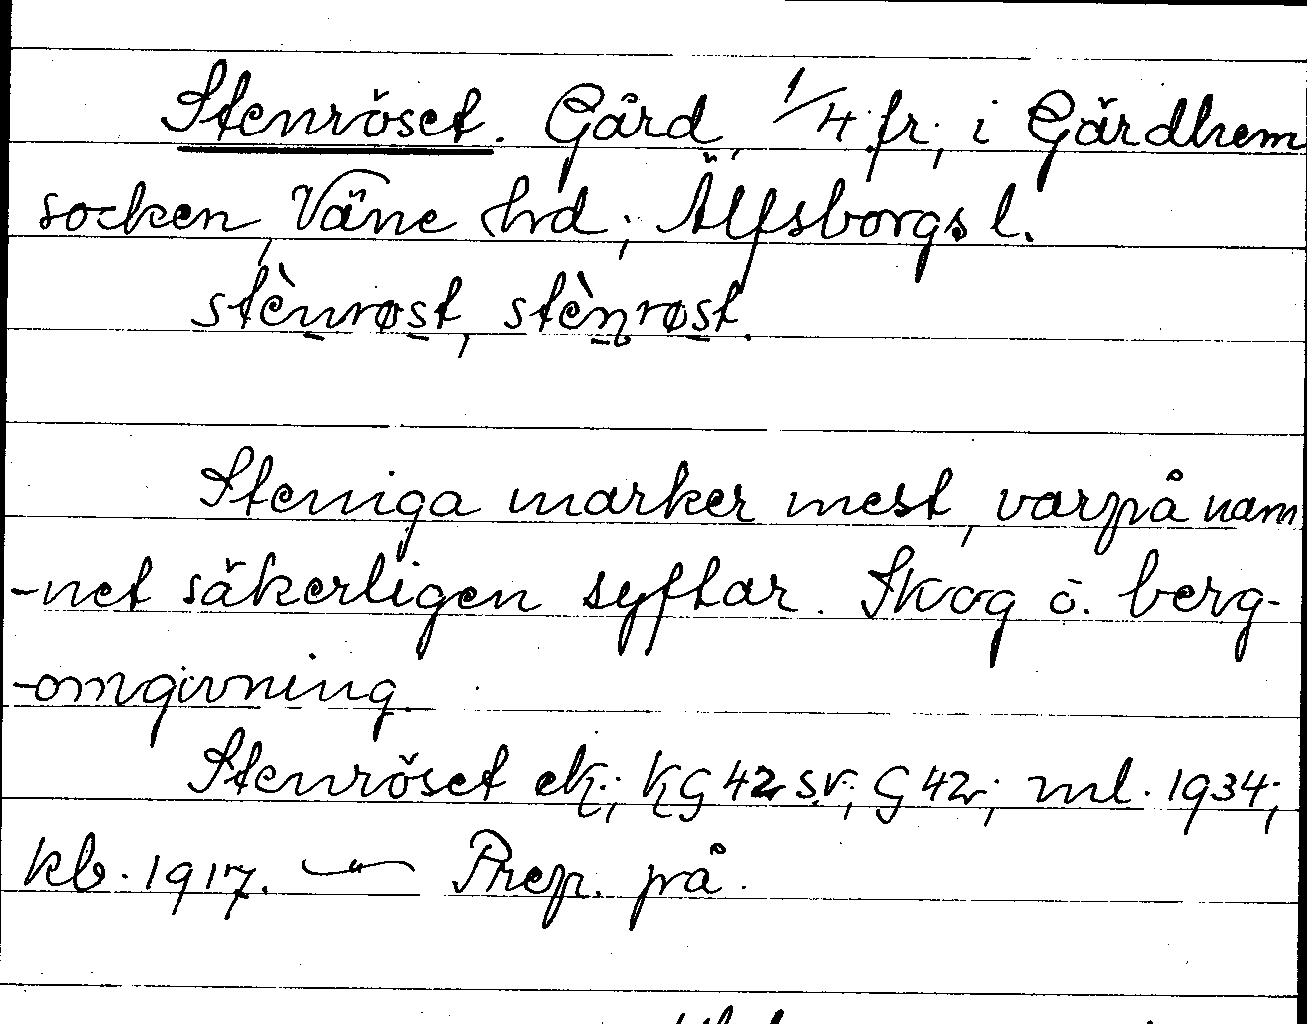 Stenröset. Gård, 1/4 fr, i Gärdhem
socken, Väne hd, Älfsborgs l.
stènrøst, stènrøst.
Steniga marker mest, varpå nam
-net säkerligen syftar. Skog o. berg-
-omgivning.
Stenröset ek.; KG 42 sv; G 42; ml. 1934;
kb. 1917. — Prep. på.